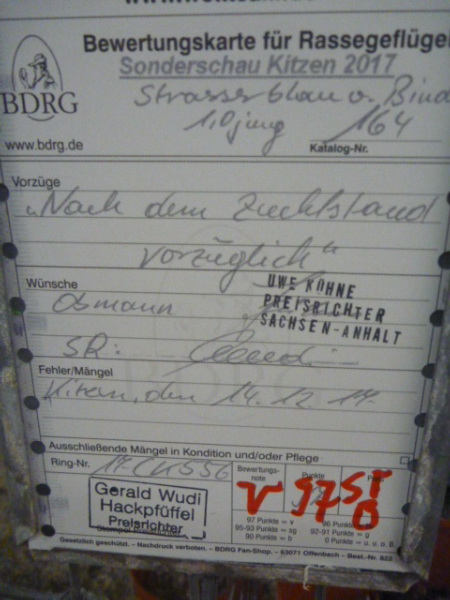 Bewertungskarte für Rassegeflügel
Sonderschau Kitzen 2017
BDRG
Strasser blau o. Bind
1,0 jung 164
www.bdrg.de Katalog-Nr.
Vorzüge
„Nach dem Zuchtstand
vorzüglich"
Wünsche
UWE KÜHNE
PREISRICHTER
SACHSEN-ANHALT
Obmann
SR:
Fehler/Mängel
Kitzen, den 14.12.17.
Ausschließende Mängel in Kondition und/oder Pflege
Ring-Nr.
Bewertungs-note Punkte
v 97
Gerald Wudi
Hackpfüffel
Preisrichter
97 Punkte = v
95-93 Punkte = sg
92-91 Punkte = g
90 Punkte = b
0 Punkte = u. o. B.
Gesetzlich geschützt. – Nachdruck verboten. – BDRG Fan-Shop. – 63071 Offenbach – Best.-Nr. 822